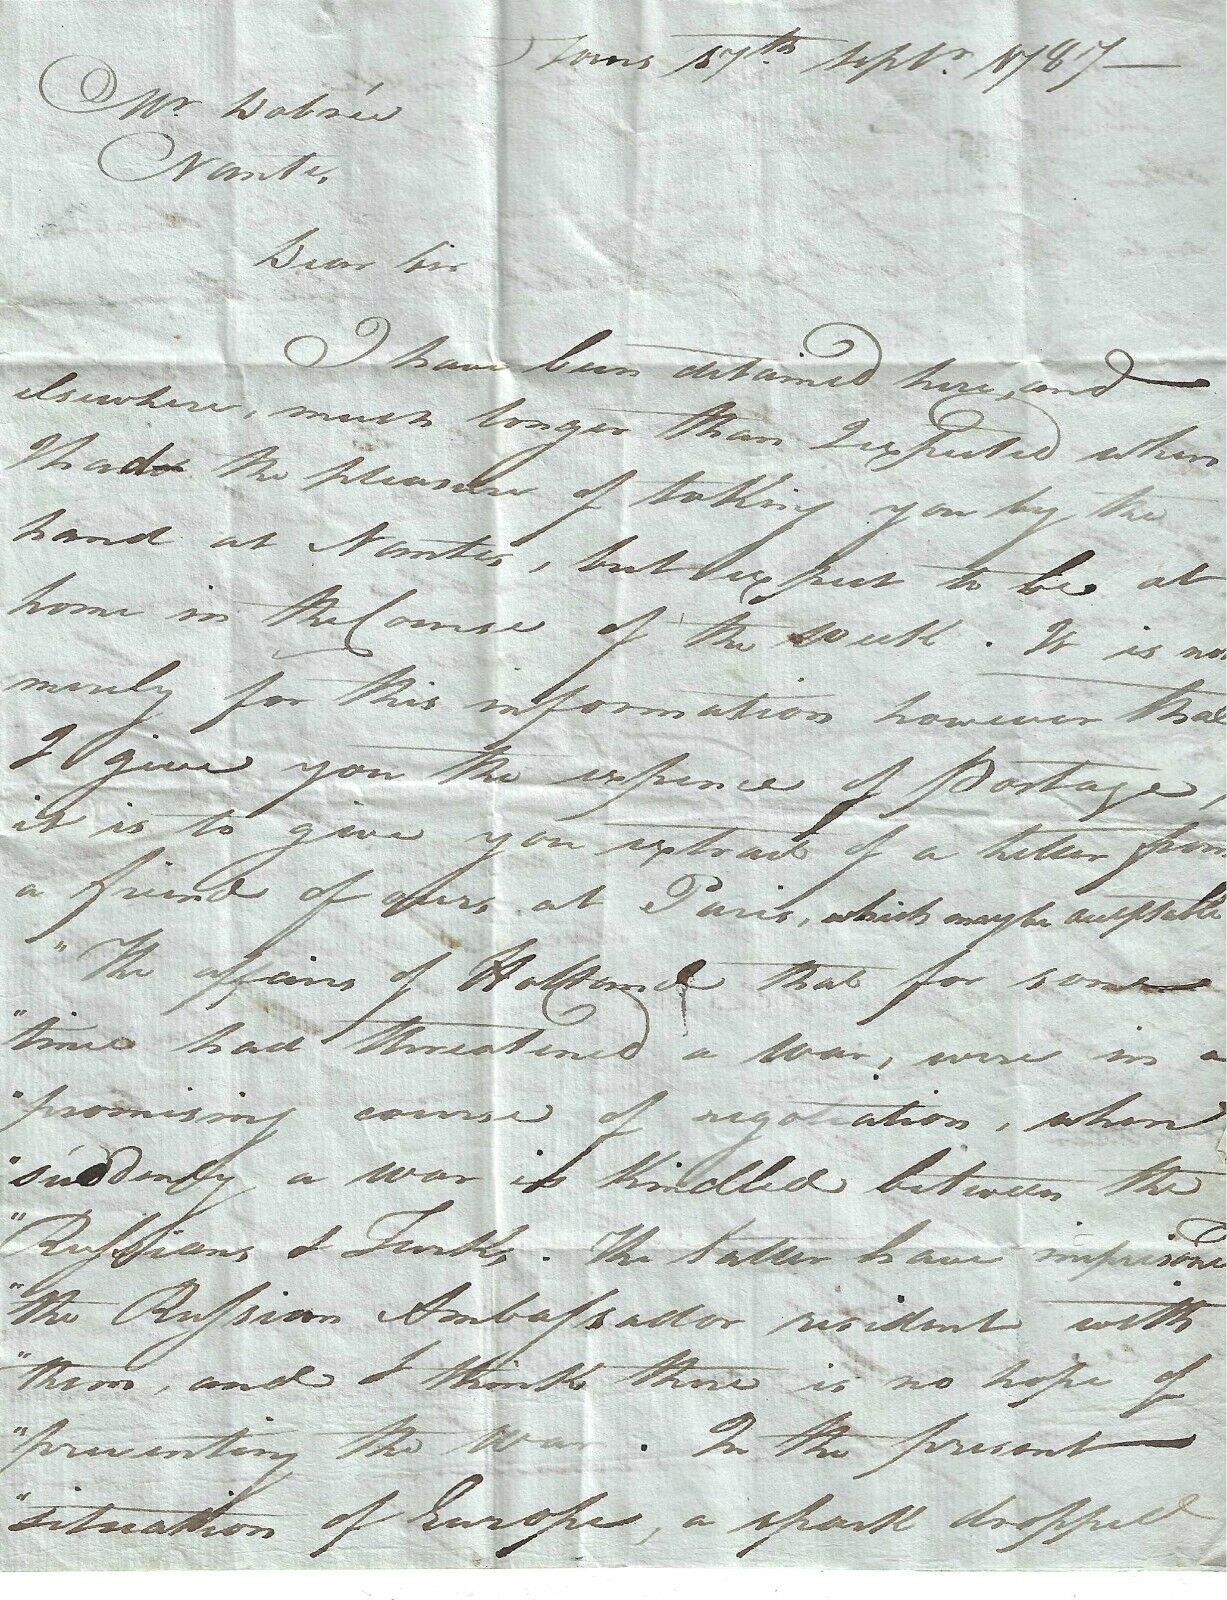 Tours 17th Septr. 1787 —
Mr. Dobrée
Nantes,
Dear Sir
I have been detained here, and
elsewhere, much longer than I expected when
I had the pleasure of taking you by the
hand at Nantes, but expect to be at
home in the Course of the week. It is not
merely for this information however that
I give you the expence of Postage,
it is to give you extract of a letter from
a friend of ours at Paris, which may be acceptable
"The affairs of Holland that for some
"time had threatened a war, were in a
"promising course of negotiation, when
"suddenly a war is kindled between the
"Russians & Turks. The latter have imprisoned
"the Russian Ambassador resident with
"them, and I think there is no hope of
"preventing the war. In the present
"situation of Europe, a spark dropped